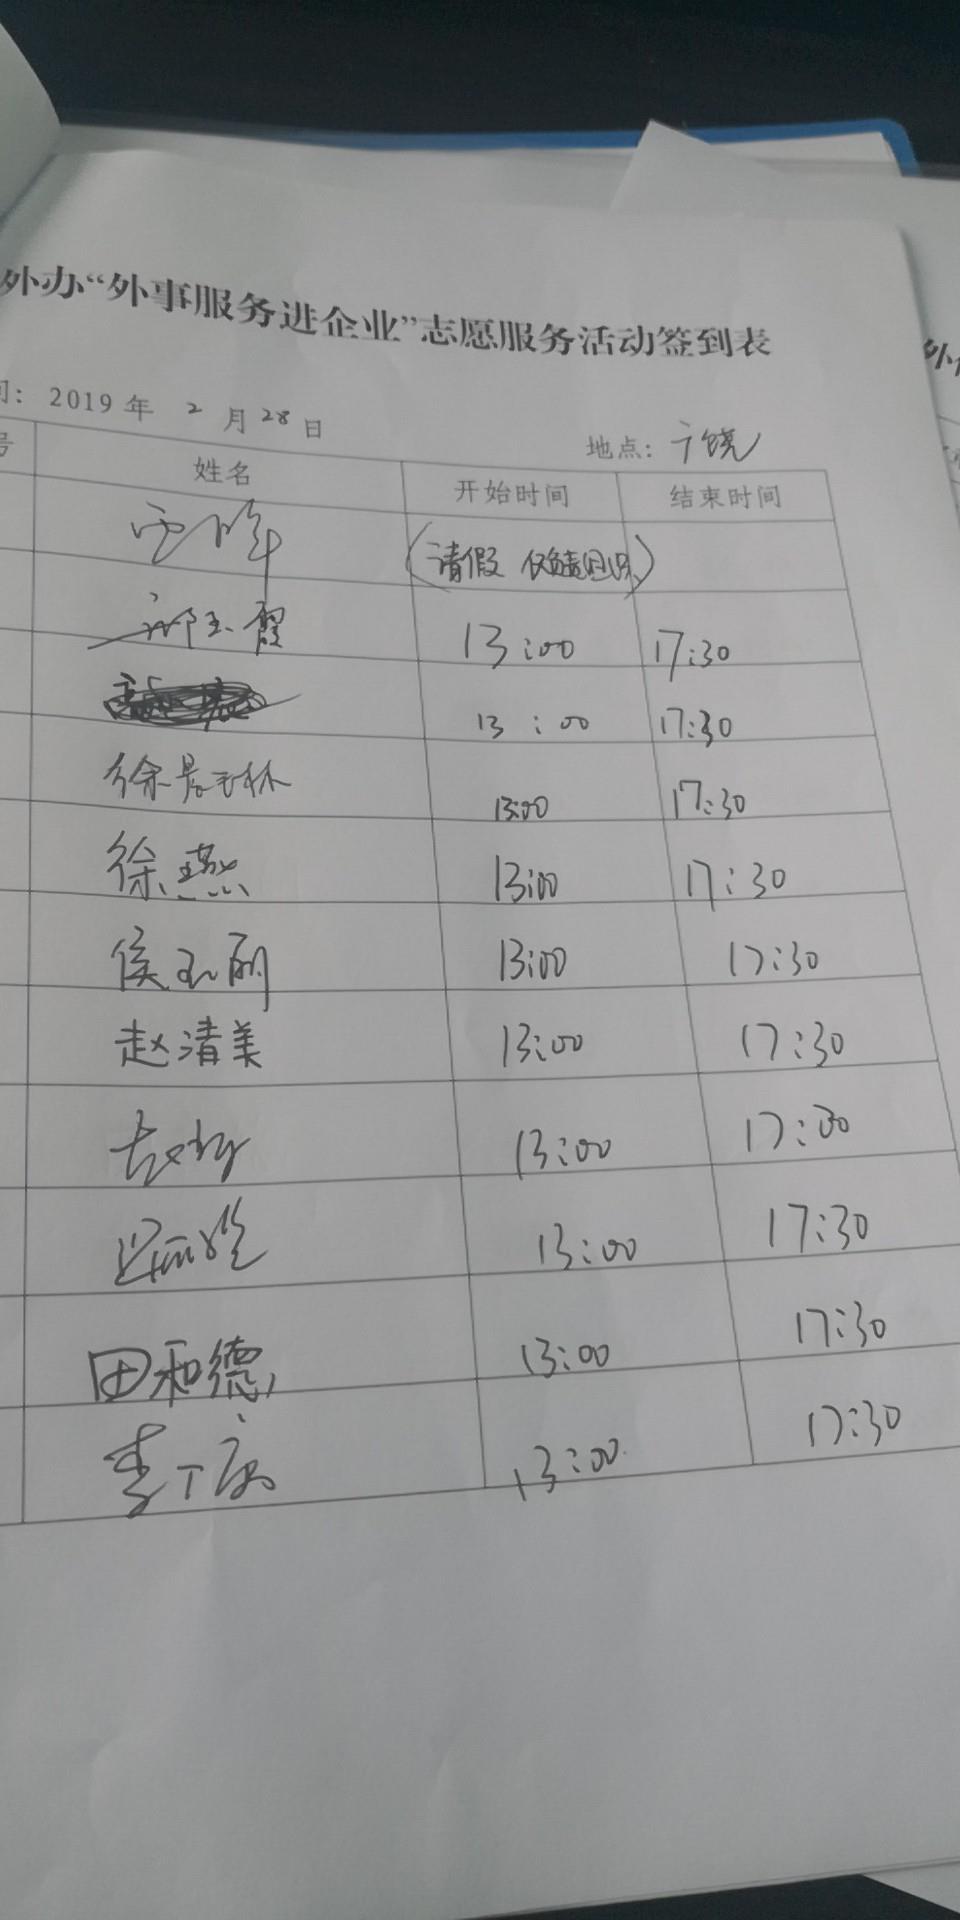 外办“外事服务进企业”志愿服务活动签到表
间: 2019年 2月28日 地点: 广饶
号 姓名 开始时间 结束时间
(请假
玉霞 13:00 17:30
13:00 17:30
徐 13:00 17:30
徐燕 13:00 17:30
侯玉丽 13:00 17:30
赵清美 13:00 17:30
13:00 17:30
13:00 17:30
田和德 13:00 17:30
李 13:00 17:30